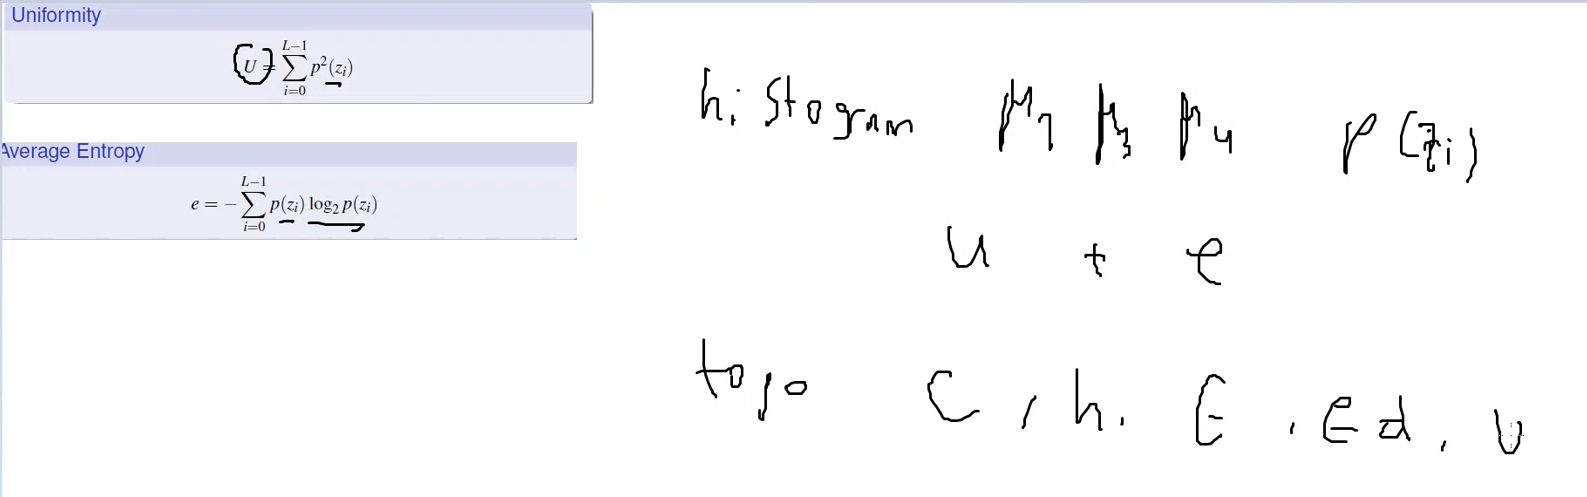 Uniformity
U = \sum_{i=0}^{L-1} p^2(z_i)
Average Entropy
e = -\sum_{i=0}^{L-1} p(z_i) \log_2 p(z_i)
histogram μ_2 μ_3 μ_4 p(z_i)
u + e
topo C, h, E, Ed, v